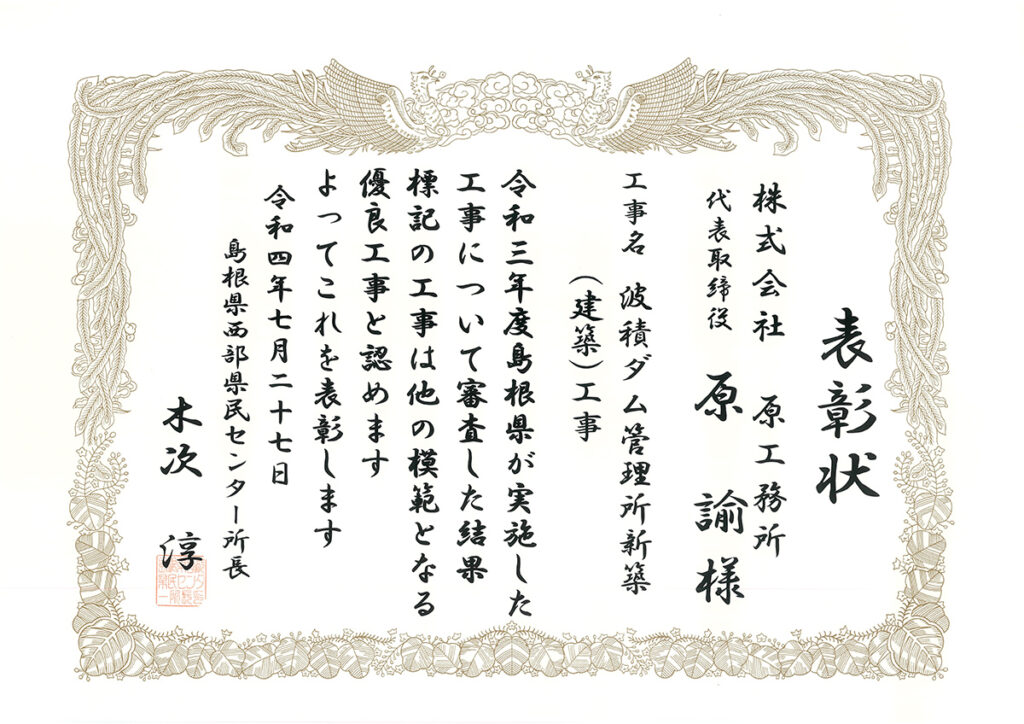 表彰状
株式会社 原工務所
代表取締役 原 諭 様
工事名 波積ダム管理所新築
(建築)工事
令和三年度島根県が実施した
工事について審査した結果
標記の工事は他の模範となる
優良工事と認めます
よってこれを表彰します
令和四年七月二十七日
島根県西部県民センター所長
木次 淳